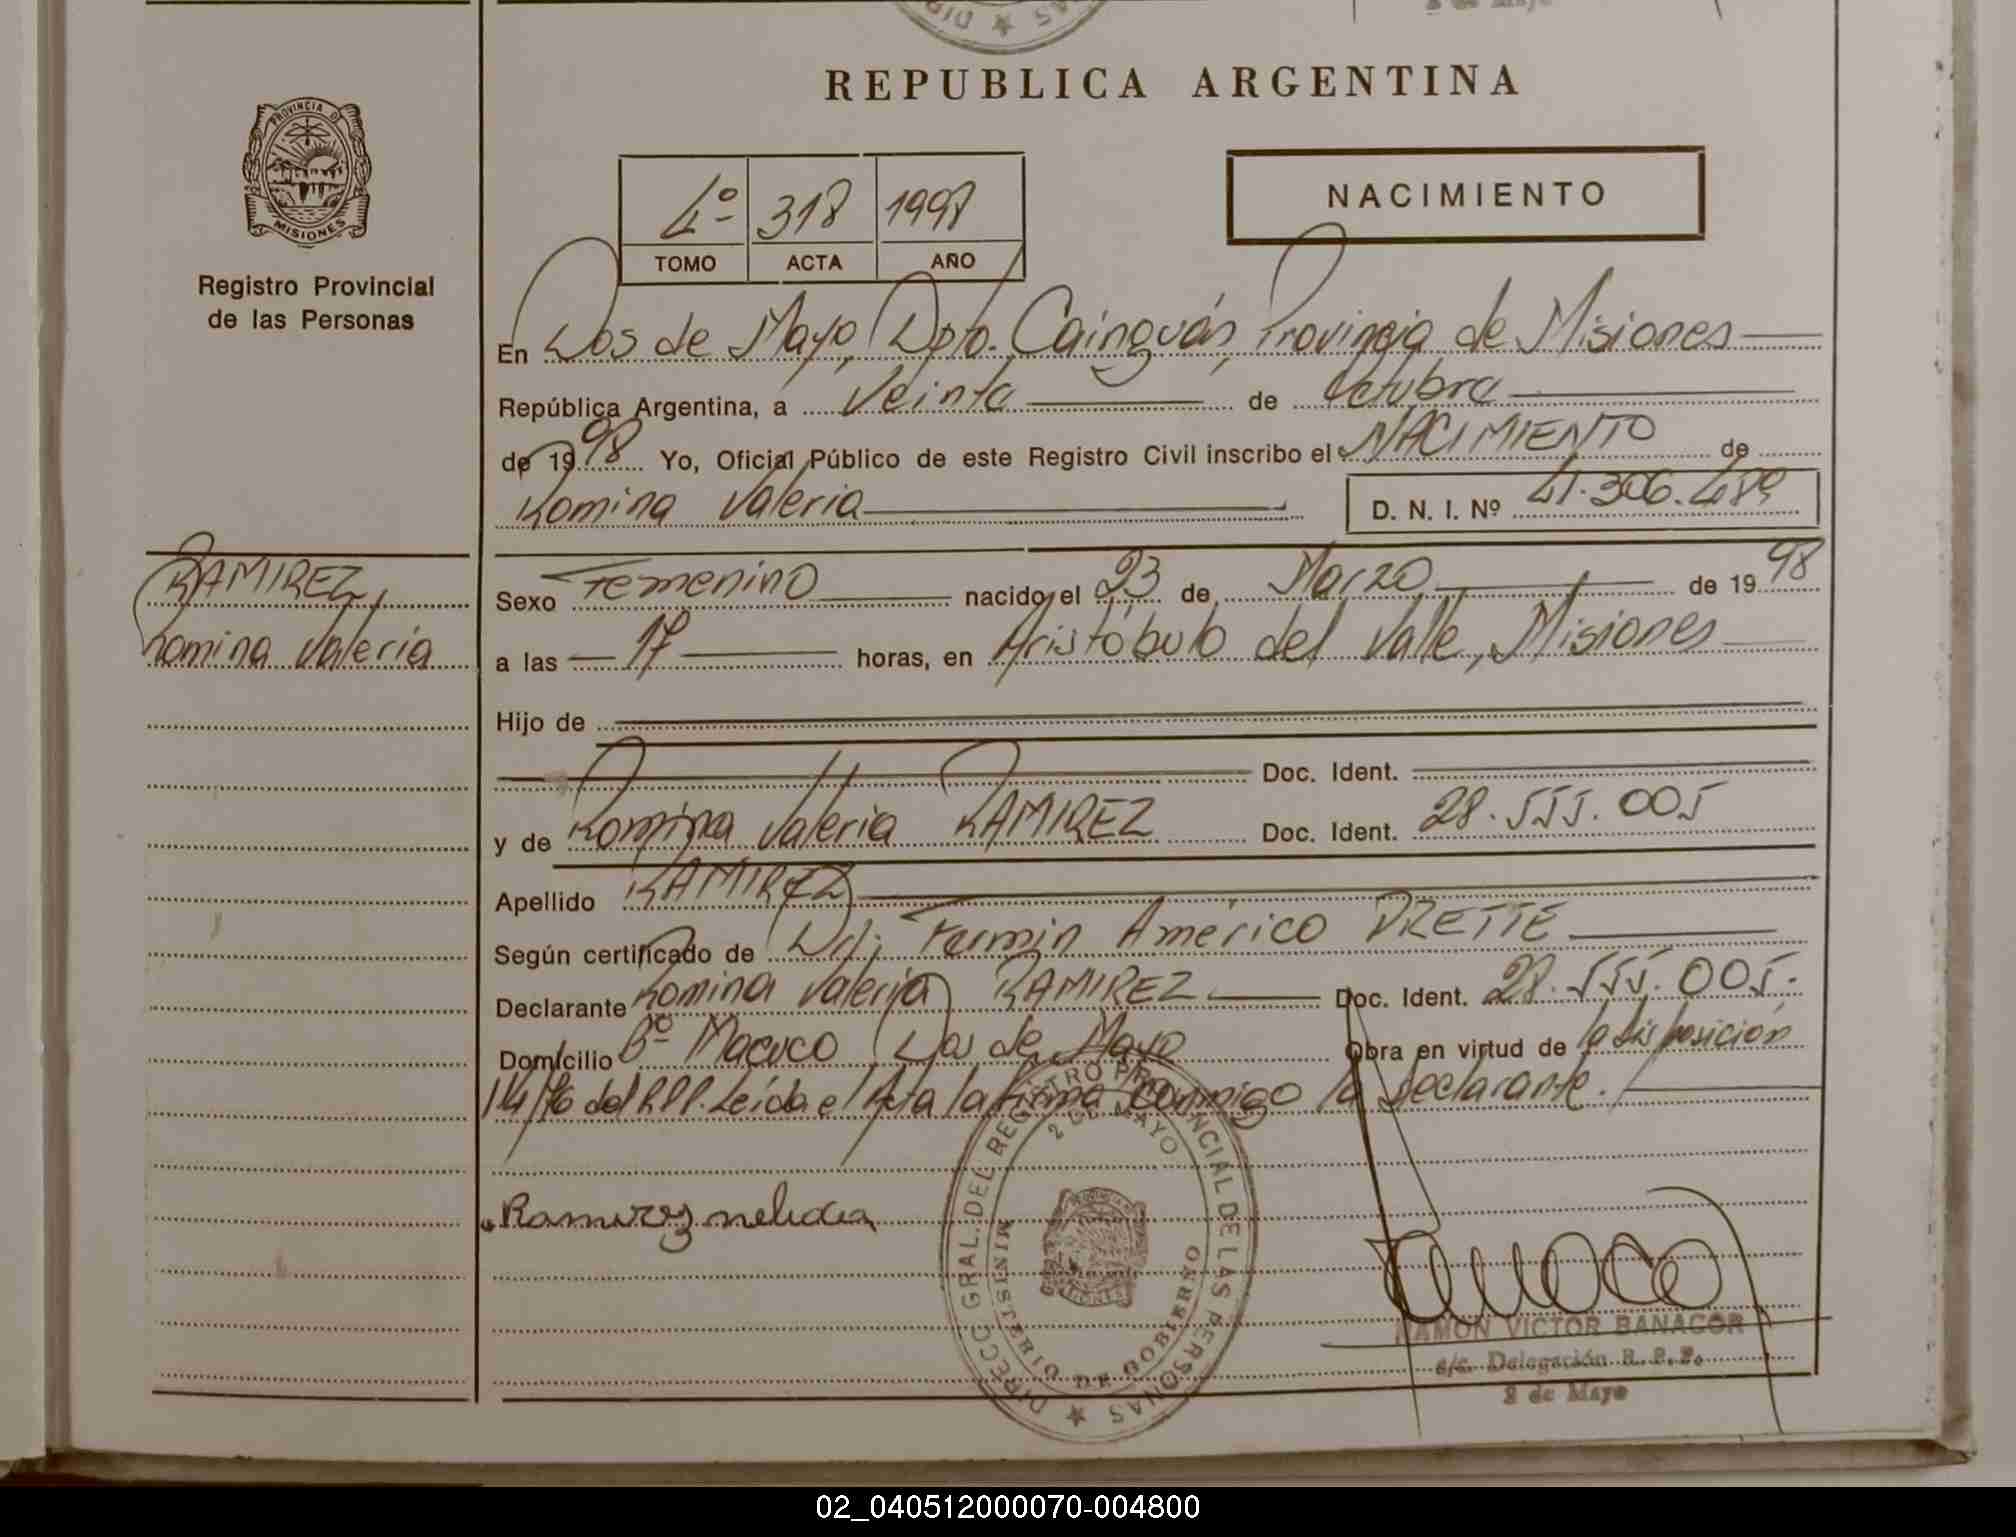 REPUBLICA ARGENTINA
PROVINCIA DE
MISIONES
Registro Provincial
de las Personas
4º 318 1998
TOMO ACTA AÑO
NACIMIENTO
En Dos de Mayo, Dpto. Cainguás, Provincia de Misiones
República Argentina, a Veinte de Octubre
de 1998 Yo, Oficial Público de este Registro Civil inscribo el NACIMIENTO de
Romina Valeria D. N. I. Nº 41.306.489
RAMIREZ,
Romina Valeria
Sexo Femenino nacido el 23 de Marzo de 1998
a las 17 horas, en Aristóbulo del Valle, Misiones
Hijo de
Doc. Ident.
y de Romina Valeria RAMIREZ Doc. Ident. 28.555.005
Apellido RAMIREZ
Según certificado de Fermin Américo
Declarante Romina Valeria RAMIREZ Doc. Ident. 28.555.005.
Domicilio Bº Macuco Dos de Mayo Obra en virtud de la disposición
14/76 del R.P.P. Leída el Acta la firma conmigo la declarante.
Ramirez nelida
DIRECC GRAL. DEL REGISTRO PROVINCIAL DE LAS PERSONAS
2 DE MAYO
MINISTERIO DE GOBIERNO
RAMON VICTOR BANACOR
a/c. Delegación R. P. P.
2 de Mayo
02_040512000070-004800